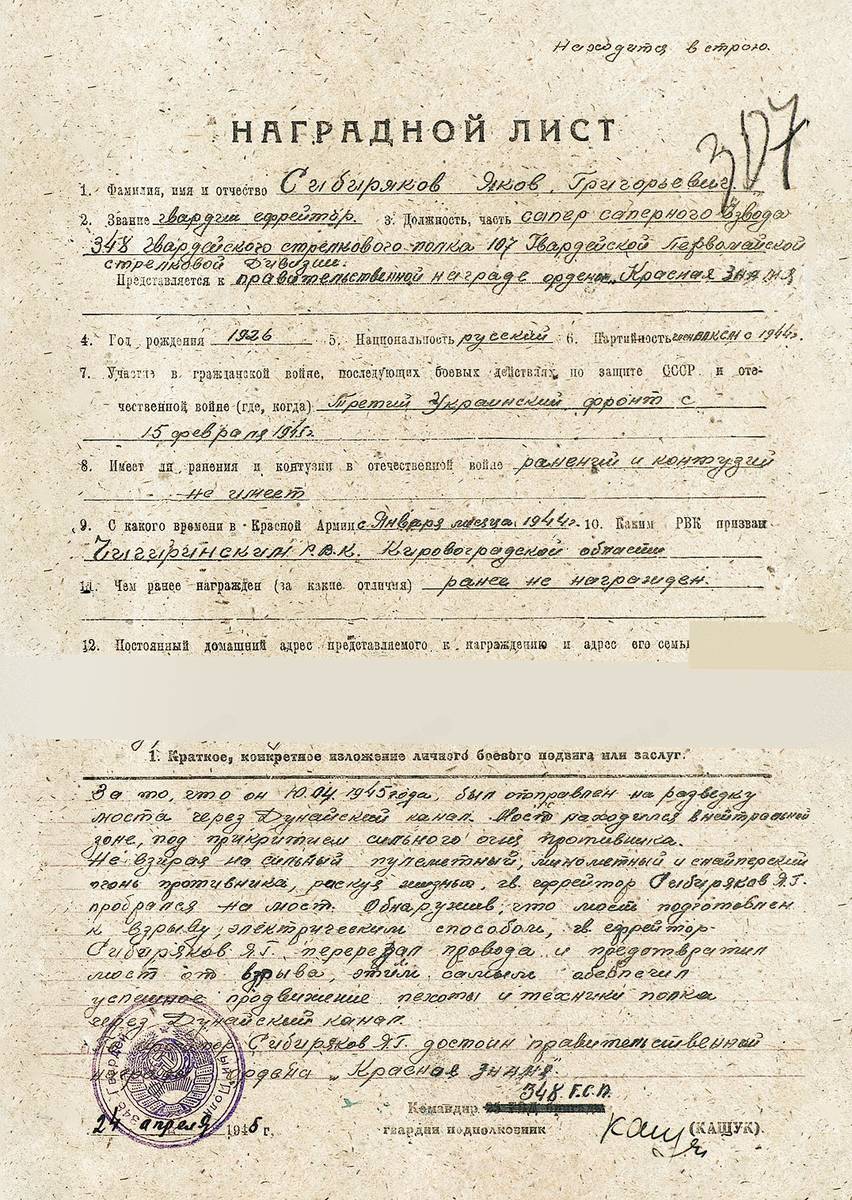 Находится в строю.
307
НАГРАДНОЙ ЛИСТ
1. Фамилия, имя и отчество Сибиряков Яков Григорьевич.
2. Звание гвардии ефрейтор. 3. Должность, часть сапер саперного взвода
348 Гвардейского стрелкового полка 107 Гвардейской Первомайской
стрелковой Дивизии.
Представляется к правительственной награде ордена „Красная Знамя
4. Год рождения 1926 5. Национальность русский 6. Партийность член ВЛКСМ с 1944г.
7. Участие в гражданской войне, последующих боевых действиях по защите СССР и оте-
чественной войне (где, когда) Третий Украинский фронт с
15 февраля 1945г.
8. Имеет ли ранения и контузии в отечественной войне ранений и контузий
не имеет
9. С какого времени в Красной Армии с Января месяца 1944г. 10. Каким РВК призван
Чигиринским Р.В.К. Кировоградской области
11. Чем ранее награжден (за какие отличия) ранее не награжден.
12. Постоянный домашний адрес представляемого к награждению и адрес его семьи
1. Краткое, конкретное изложение личного боевого подвига или заслуг.
За то, что он 10.04.1945 года, был отправлен на разведку
моста через Дунайский канал. Мост находился в нейтральной
зоне, под прикритием сильного огня противника.
Не взирая на сильный пулеметный, минометный и снайперский
огонь противника, рискуя жизнью, гв. ефрейтор Сибиряков Я.Г.
пробрался на мост. Обнаружив, что мост подготовлен
к взрыву, электрическим способом, гв. ефрейтор
Сибиряков Я.Г. перерезал провода и предотвратил
мост от взрыва, этим самым обеспечил
успешное продвижение пехоты и техники полка
через Дунайский канал.
Сибиряков Я.Г. достоин правительственной
награды ордена „Красная знамя"
348 Г.С.П.
Командир
гвардии подполковник Кащук (КАЩУК)
24 апреля 1945 г.